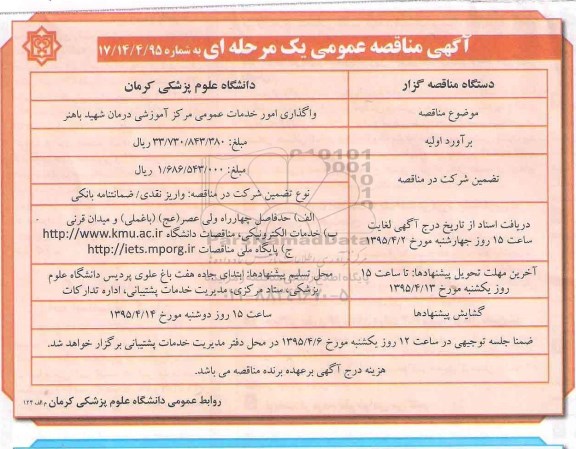 آگهی مناقصه عمومی یک مرحله ای به شماره ۱۷/۱۴/۴/۹۵
دستگاه مناقصه گزار
دانشگاه علوم پزشکی کرمان
موضوع مناقصه
واگذاری امور خدمات عمومی مرکز آموزشی درمان شهید باهنر
برآورد اولیه
مبلغ: ۳۳/۷۳۰/۸۴۳/۳۸۰ ریال
تضمین شرکت در مناقصه
مبلغ: ۱/۶۸۶/۵۴۳/۰۰۰ ریال
نوع تضمین شرکت در مناقصه: واریز نقدی/ ضمانتنامه بانکی
دریافت اسناد از تاریخ درج آگهی لغایت
ساعت ۱۵ روز چهارشنبه مورخ ۱۳۹۵/۴/۲
الف) حدفاصل چهارراه ولی عصر(عج) (باغملی) و میدان قرنی
ب) خدمات الکترونیکی، مناقصات دانشگاه http://www.kmu.ac.ir
ج) پایگاه ملی مناقصات http://iets.mporg.ir
آخرین مهلت تحویل پیشنهادها: تا ساعت ۱۵
روز یکشنبه مورخ ۱۳۹۵/۴/۱۳
محل تسلیم پیشنهادها: ابتدای جاده هفت باغ علوی پردیس دانشگاه علوم
پزشکی، ستاد مرکزی، مدیریت خدمات پشتیبانی، اداره تدارکات
گشایش پیشنهادها
ساعت ۱۵ روز دوشنبه مورخ ۱۳۹۵/۴/۱۴
ضمنا جلسه توجیهی در ساعت ۱۲ روز یکشنبه مورخ ۱۳۹۵/۴/۶ در محل دفتر مدیریت خدمات پشتیبانی برگزار خواهد شد.
هزینه درج آگهی برعهده برنده مناقصه می باشد.
روابط عمومی دانشگاه علوم پزشکی کرمان م الف ۱۲۳